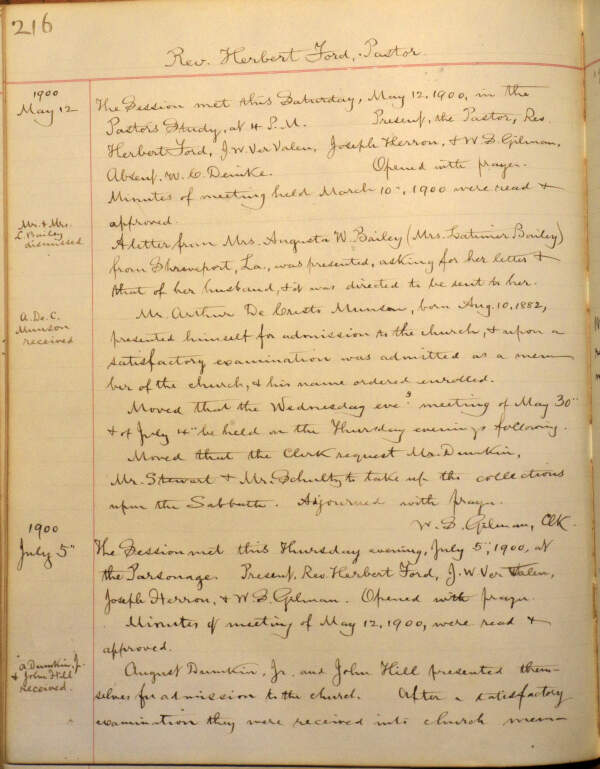 216
Rev. Herbert Ford, Pastor.
1900
May 12
The Session met this Saturday, May 12, 1900, in the
Pastor's Study, at 4 P.M. Present, the Pastor, Rev.
Herbert Ford, J. W. Ver Valen, Joseph Herron, & W. S. Gilman,
Absent. W. C. Demke. Opened with prayer.
Minutes of meeting held March 10", 1900 were read &
approved.
Mr. & Mrs.
L. Bailey
dismissed
A letter from Mrs. Augusta W. Bailey (Mrs. Latimer Bailey)
from Shreveport, La., was presented, asking for her letter &
that of her husband, & it was directed to be sent to her.
A. De C.
Munson
received
Mr. Arthur De Cresto Munson, born Aug. 10, 1882,
presented himself for admission to the church, & upon a
satisfactory examination was admitted as a mem
ber of the church, & his name ordered enrolled.
Moved that the Wednesday eve'g meeting of May 30"
& of July 4" be held on the Thursday evenings following.
Moved that the Clerk request Mr. Dumkin,
Mr. Stewart & Mr. Schultz to take up the collections
upon the Sabbath. Adjourned with prayer.
W. S. Gilman, Clk.
1900
July 5"
The Session met this Thursday evening, July 5", 1900, at
the Parsonage. Present, Rev. Herbert Ford, J. W. Ver Valen,
Joseph Herron, & W. S. Gilman. Opened with prayer.
Minutes of meeting of May 12, 1900, were read &
approved.
A Dumkin, Jr.
& John Hill
received.
August Dumkin, Jr. and John Hill presented them-
selves for admission to the church. After a satisfactory
examination they were received into church mem-